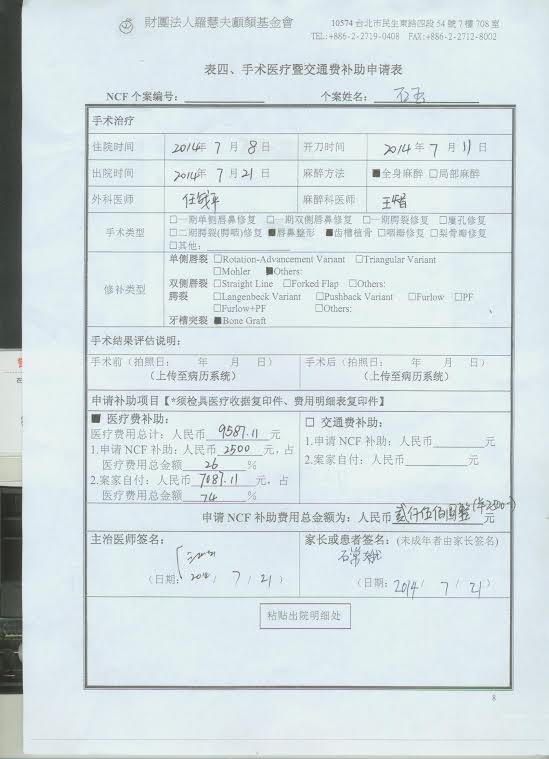 財團法人羅慧夫顱顏基金會
10574 台北市民生東路四段 54 號 7 樓 708 室
TEL:+886-2-2719-0408 FAX:+886-2-2712-8002
表四、手术医疗暨交通费补助申请表
NCF 个案编号: 个案姓名:
手术治疗
住院时间 2014年 7 月 8 日 开刀时间 2014 年 7 月 11 日
出院时间 2014年 7 月 21 日 麻醉方法 ■全身麻醉 □局部麻醉
外科医师 麻醉科医师
手术类型 □一期单侧唇鼻修复 □一期双侧唇鼻修复 □一期腭裂修复 □瘘孔修复
□二期腭裂(腭咽)修复 ■唇鼻整形 ■齿槽植骨 □咽瓣修复 □梨骨瓣修复
□其他:
修补类型 单侧唇裂 □Rotation-Advancement Variant □Triangular Variant
□Mohler ■Others:
双侧唇裂 □Straight Line □Forked Flap □Others:
腭裂 □Langenbeck Variant □Pushback Variant □Furlow □PF
□Furlow+PF □Others:
牙槽突裂 ■Bone Graft
手术结果评估说明:
手术前（拍照日: 年 月 日） 手术后（拍照日: 年 月 日）
(上传至病历系统) (上传至病历系统)
申请补助项目【*须检具医疗收据复印件、费用明细表复印件】
■ 医疗费补助: □ 交通费补助:
医疗费用总计: 人民币 9587.11 元
1.申请 NCF 补助: 人民币 2500 元, 占 1.申请 NCF 补助: 人民币 元
医疗费用总金额 26 %
2.案家自付: 人民币 7087.11 元, 占 2.案家自付: 人民币 元
医疗费用总金额 74 %
申请 NCF 补助费用总金额为: 人民币 贰仟伍佰圆整 元
主治医师签名: 家长或患者签名: (未成年者由家长签名)
(日期: 2014 / 7 / 21 ) (日期: 2014 / 7 / 21 )
粘贴出院明细处
8